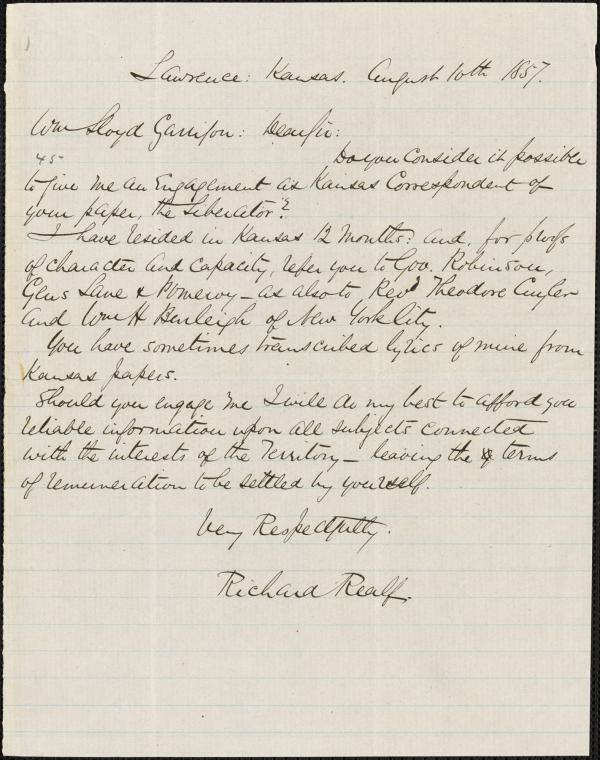 Lawrence: Kansas. August 10th 1857.
Wm Lloyd Garrison: Dear Sir:
45
Do you consider it possible
to give me an Engagement as Kansas Correspondent of
your paper, the Liberator?
I have resided in Kansas 12 months: and, for proofs
of character and capacity, refer you to Gov. Robinson,
Gens Lane & Pomeroy – as also to Revd Theodore Cuyler
and Wm H Burleigh of New York City.
You have sometimes transcribed lyrics of mine from
Kansas papers.
Should you engage me I will do my best to afford you
reliable information upon all subjects connected
with the interests of the Territory – leaving the terms
of remuneration to be settled by yourself.
Very Respectfully.
Richard Realf.